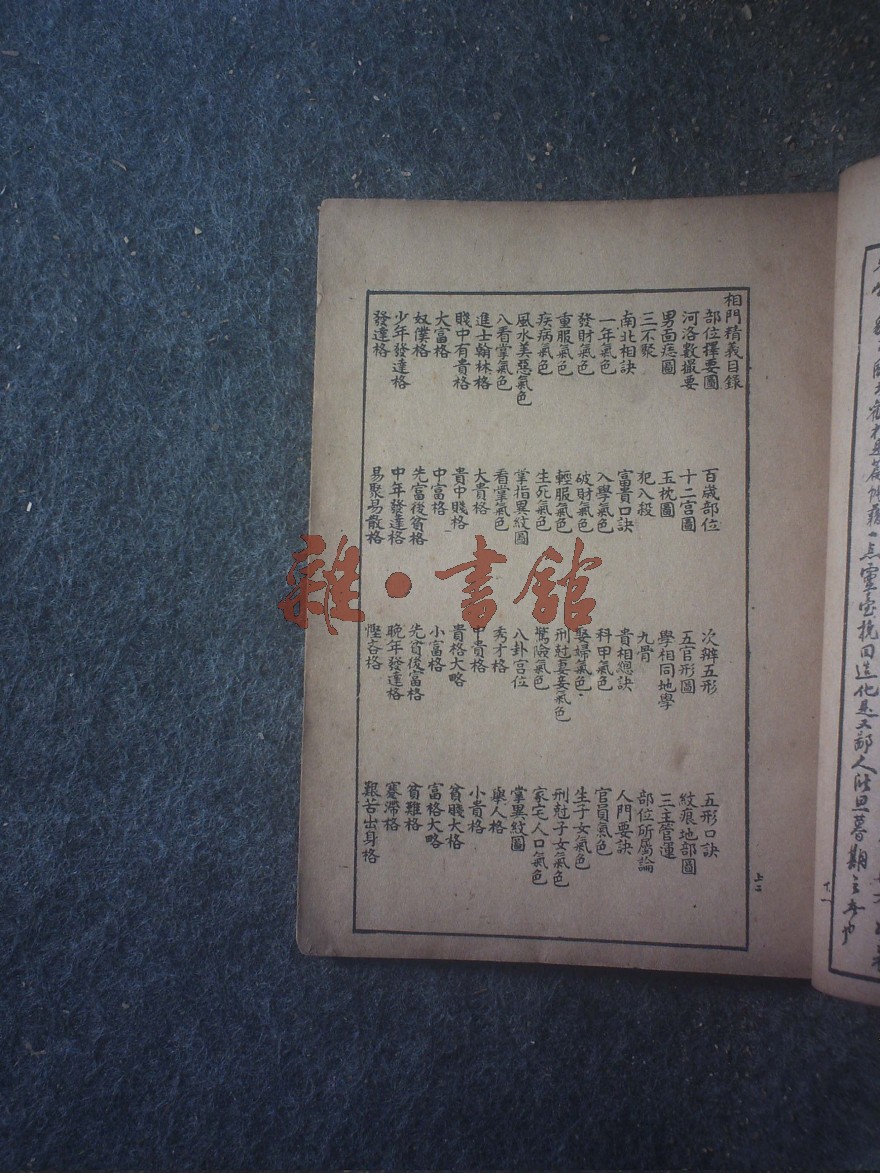 相門精義目錄
部位擇要圖 百歲部位 次辨五形 五形口訣
河洛數撮要 十二宮圖 五官形圖 紋痕地部圖
男面痣圖 玉枕圖 學相同地學 三主管運
三不聚 犯八殺 九骨 部位所屬論
南北相訣 富貴口訣 貴相總訣 入門要訣
一年氣色 入學氣色 科甲氣色 官員氣色
發財氣色 破財氣色 娶婦氣色 生子女氣色
重服氣色 輕服氣色 刑尅妻妾氣色 刑尅子女氣色
疾病氣色 生死氣色 驚險氣色 家宅人口氣色
風水美惡氣色 掌指異紋圖 八卦宮位 掌異紋圖
八看掌氣色 看掌氣色 秀才格 舉人格
進士翰林格 大貴格 中貴格 小貴格
賤中有貴格 貴中賤格 貴格大略 貧賤大格
大富格 中富格 小富格 富格大略
奴僕格 先富後貧格 先貧後富格 貧雖格
少年發達格 中年發達格 晚年發達格 蹇滯格
發達格 易聚易散格 慳吝格 艱苦出身格
上二
雜·書館